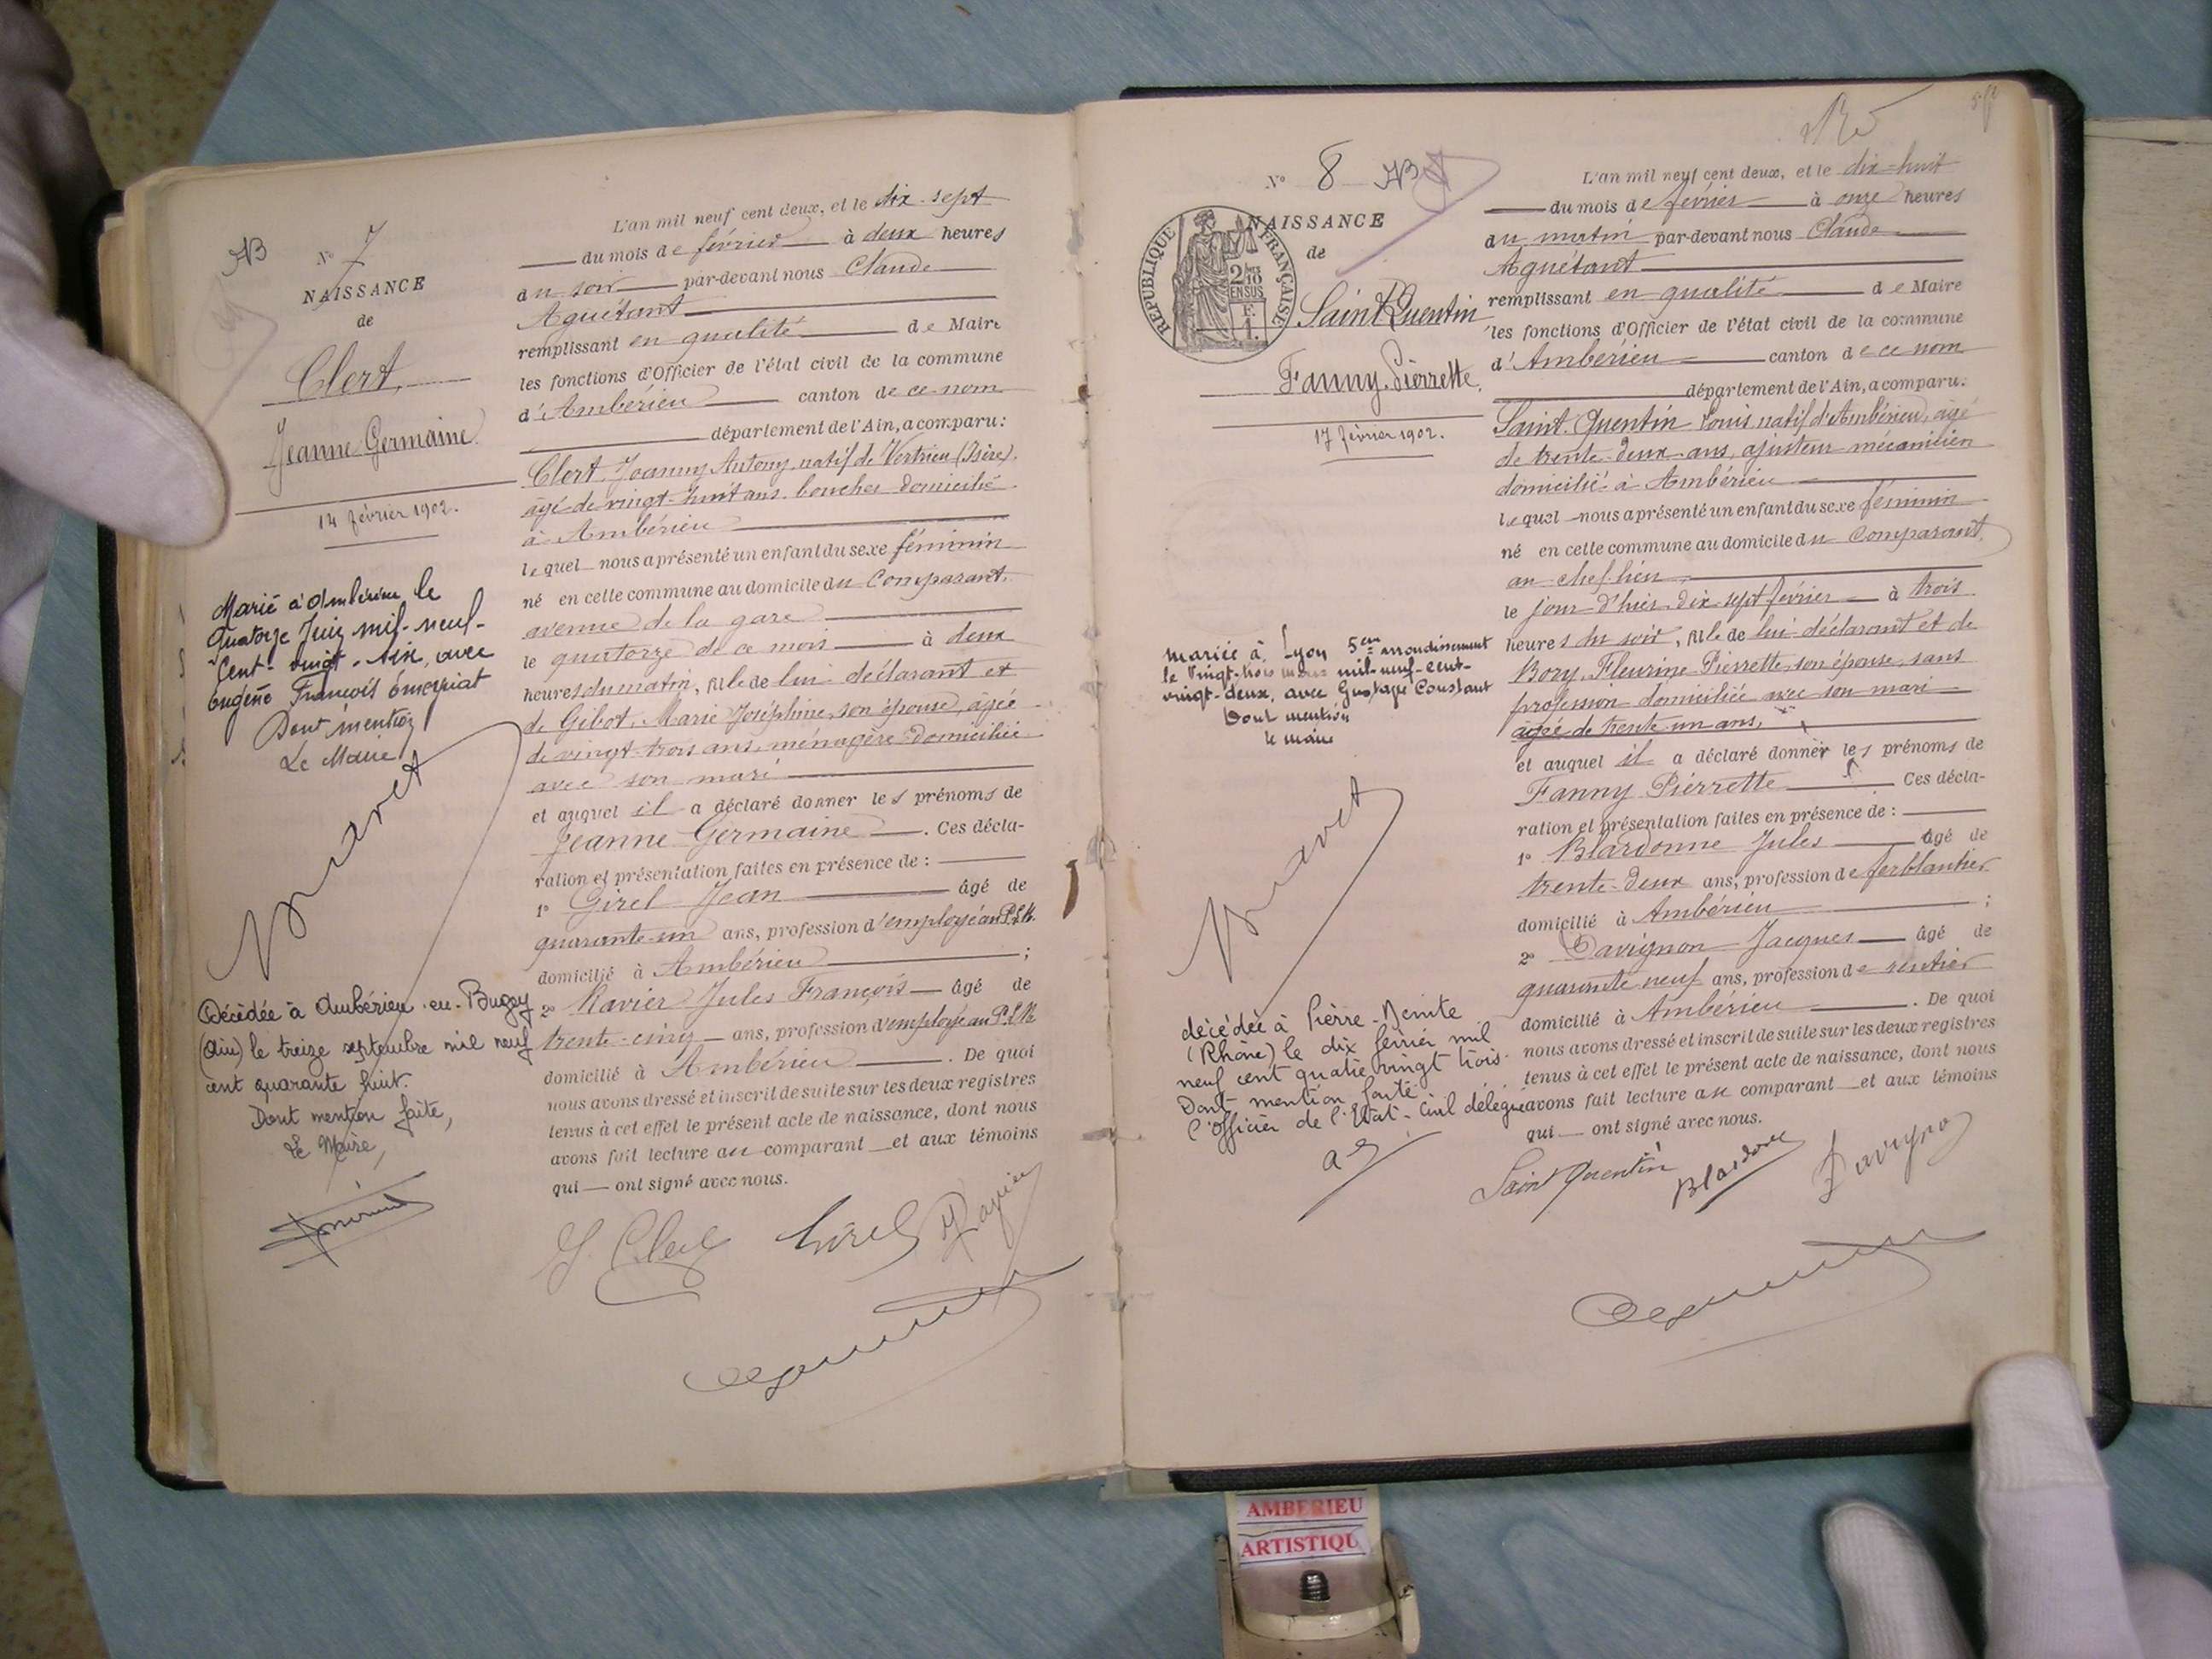 NB
N° 7
NAISSANCE
de
Clert
Jeanne Germaine
14 février 1902.
Marié à Ambérieu le
Quatorze Juin mil-neuf-
Cent-vingt-six, avec
Eugène François Emeyriat
Dont mention
Le Maire
Décédée à Ambérieu-en-Bugey
(Ain) le treize septembre mil neuf
cent quarante huit.
Dont mention faite,
Le Maire,
L'an mil neuf cent deux, et le dix-sept
du mois de février à deux heures
du soir par-devant nous Claude
Aguétant
remplissant en qualité de Maire
les fonctions d'Officier de l'état civil de la commune
d'Ambérieu canton de ce nom
département de l'Ain, a comparu:
Clert Joanny Antony, natif de Vertrieu (Isère),
âgé de vingt-huit ans, boucher domicilié
à Ambérieu
lequel nous a présenté un enfant du sexe féminin
né en cette commune au domicile du Comparant,
avenue de la gare
le quatorze de ce mois à deux
heures du matin, fille de lui déclarant et
de Gibot, Marie Joséphine, son épouse, âgée
de vingt-trois ans, ménagère domiciliée
avec son mari
et auquel il a déclaré donner les prénoms de
Jeanne Germaine. Ces décla-
ration et présentation faites en présence de:
1° Girel Jean âgé de
quarante-un ans, profession d'employé au P.L.M.
domicilié à Ambérieu;
2° Ravier Jules François âgé de
trente-cinq ans, profession d'employé au P.L.M.
domicilié à Ambérieu. De quoi
nous avons dressé et inscrit de suite sur les deux registres
tenus à cet effet le présent acte de naissance, dont nous
avons fait lecture au comparant et aux témoins
qui ont signé avec nous.
J. Clert Girel Ravier
N° 8 NB
NAISSANCE
de
RÉPUBLIQUE FRANÇAISE
2/10 EN SUS
1 F.
Saint Quentin
Fanny Pierrette.
17 février 1902.
mariée à Lyon 5em arrondissement
le vingt-trois mars mil-neuf-cent-
vingt-deux, avec Gustave Constant
Dont mention
le maire
décédée à Pierre-Bénite
(Rhône) le dix février mil
neuf cent quatre vingt trois.
Dont mention faite.
L'Officier de l'Etat-Civil délégué
L'an mil neuf cent deux, et le dix-huit
du mois de février à onze heures
du matin par-devant nous Claude
Aguétant
remplissant en qualité de Maire
les fonctions d'Officier de l'état civil de la commune
d'Ambérieu canton de ce nom
département de l'Ain, a comparu:
Saint-Quentin Louis, natif d'Ambérieu, âgé
de trente-deux ans, ajusteur mécanicien
domicilié à Ambérieu
lequel nous a présenté un enfant du sexe féminin
né en cette commune au domicile du Comparant,
au chef-lieu,
le jour d'hier dix-sept février à trois
heures du soir, fille de lui déclarant et de
Bory, Fleurine Pierrette, son épouse, sans
profession domiciliée avec son mari
âgée de trente-un ans,
et auquel il a déclaré donner les prénoms de
Fanny Pierrette Ces décla-
ration et présentation faites en présence de:
1° Blardonne Jules âgé de
trente-deux ans, profession de ferblantier
domicilié à Ambérieu;
2° Davignon Jacques âgé de
quarante neuf ans, profession de rentier
domicilié à Ambérieu. De quoi
nous avons dressé et inscrit de suite sur les deux registres
tenus à cet effet le présent acte de naissance, dont nous
avons fait lecture au comparant et aux témoins
qui ont signé avec nous.
Saint Quentin Blardone Davignon
AMBERIEU
ARTISTIQU